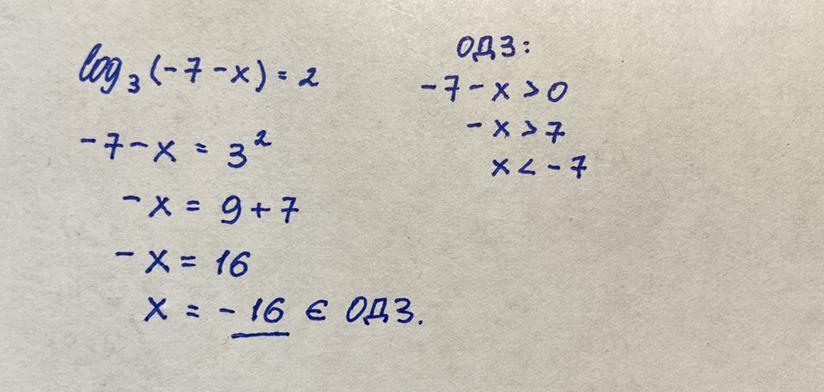 log₃(-7-x) = 2
-7-x = 3²
-x = 9+7
-x = 16
x = -16 ∈ ОДЗ.
ОДЗ:
-7-x > 0
-x > 7
x < -7